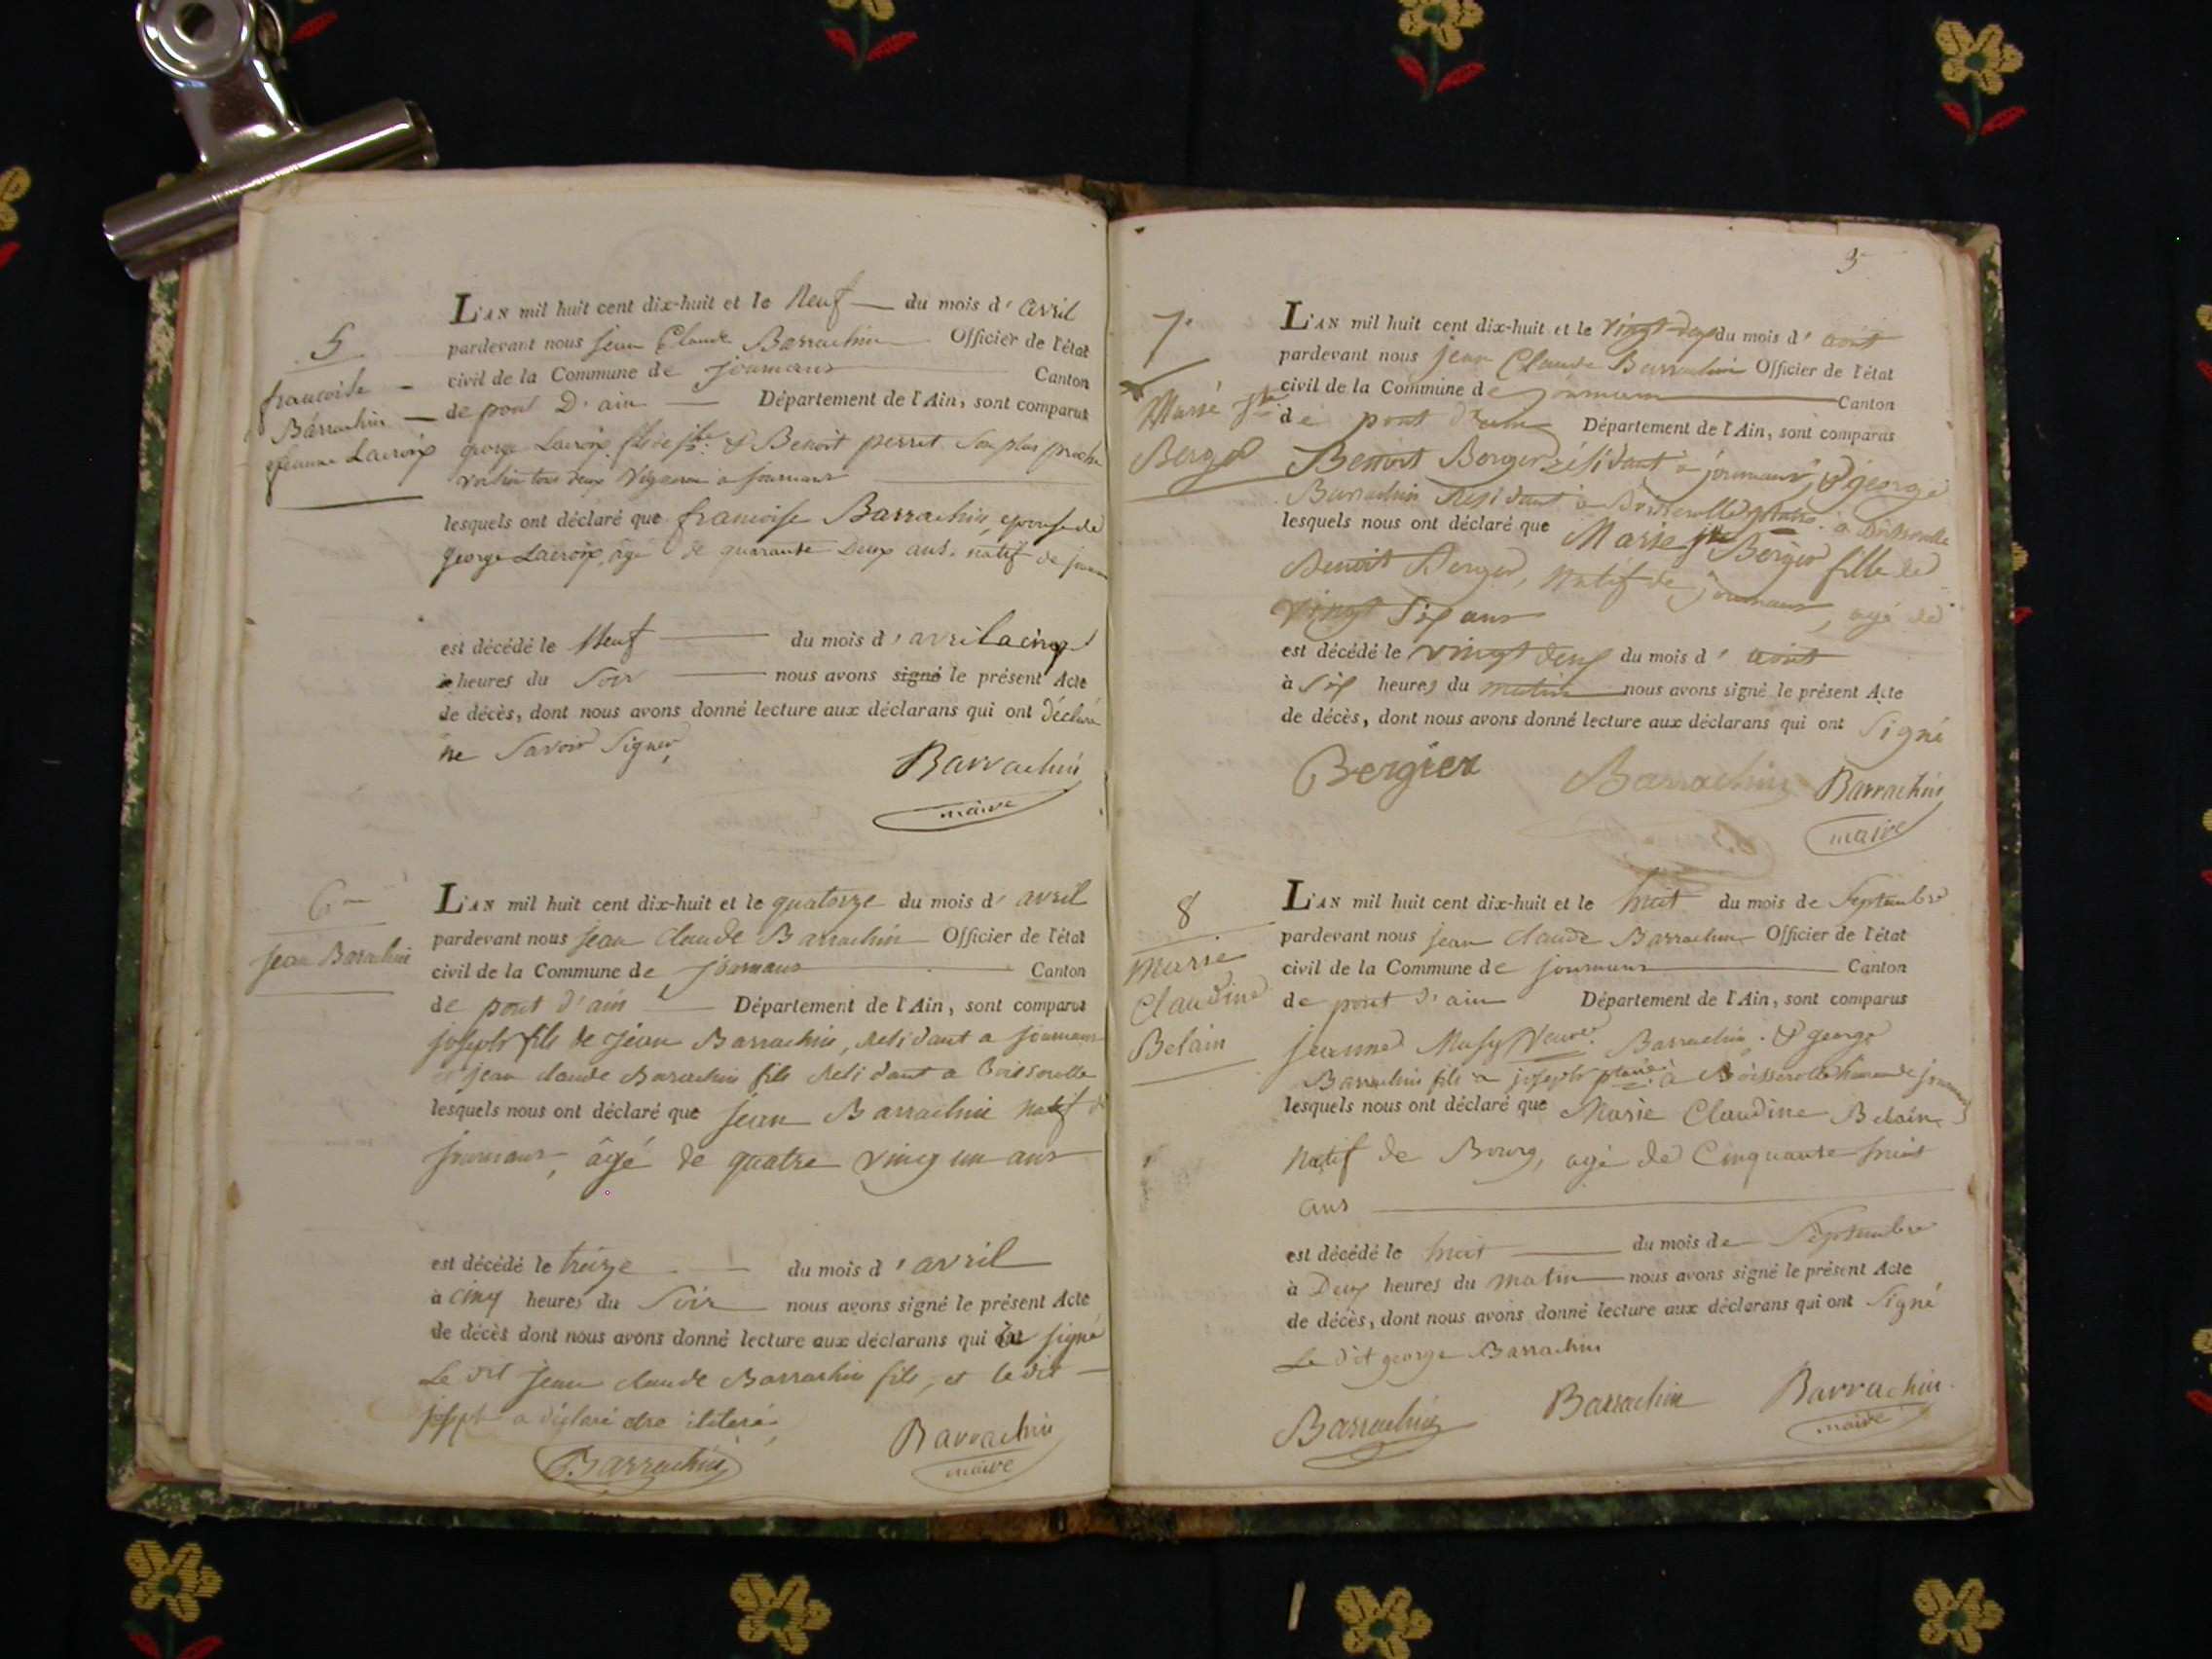 5
francoise
Barrachin
femme Lacroix
L'AN mil huit cent dix-huit et le Neuf du mois d' avril
pardevant nous jean Claude Barrachin Officier de l'état
civil de la Commune de journans Canton
de pont D'ain Département de l'Ain, sont comparus
george Lacroix fils de & Benoit perret Son plus proche
voisin tous deux Vigneron a journans
lesquels ont déclaré que francoise Barrachin epouse de
george Lacroix, âgé de quarante Deux ans, natif de
est décédé le Neuf du mois d' avril a cinq
heures du Soir nous avons signé le présent Acte
de décès, dont nous avons donné lecture aux déclarans qui ont déclaré
ne Savoir Signer,
Barrachin
maire
6
jean Barachin
L'AN mil huit cent dix-huit et le quatorze du mois d' avril
pardevant nous jean claude Barrachin Officier de l'état
civil de la Commune de journans Canton
de pont d'ain Département de l'Ain, sont comparus
joseph fils de jean Barrachin, residant a journans
et jean claude Barachin fils residant a Boisserolle
lesquels nous ont déclaré que jean Barrachin natif de
journans, âgé de quatre vingt un ans
est décédé le treize du mois d' avril
à cinq heures du Soir nous avons signé le présent Acte
de décès dont nous avons donné lecture aux déclarans qui signé
Le dit jean claude Barrachin fils, et le dit
joseph a déclaré etre
Barrachin
Barrachin
maire
3
7
Marie
Berger
L'AN mil huit cent dix-huit et le vingt-deux du mois d' aout
pardevant nous jean Claude Barrachin Officier de l'état
civil de la Commune de journans Canton
de pont d'ain Département de l'Ain, sont comparus
Benoit Berger résidant a journans, & george
Barrachin residant a Boisserolle
lesquels nous ont déclaré que Marie Berger fille de
Benoit Berger, natif de journans, agé de
vingt Six ans
est décédé le vingt deux du mois d' aout
à Six heures du matin nous avons signé le présent Acte
de décès, dont nous avons donné lecture aux déclarans qui ont Signé
Bergier Barrachin Barrachin
maire
8
Marie
Claudine
Belain
L'AN mil huit cent dix-huit et le huit du mois de Septembre
pardevant nous jean claude Barrachin Officier de l'état
civil de la Commune de journans Canton
de pont d'ain Département de l'Ain, sont comparus
jeanne Barrachin & george
Barrachin fils a joseph a Boisserolle
lesquels nous ont déclaré que Marie Claudine Belain
natif de Bourg, agé de Cinquante huit
ans
est décédé le huit du mois de Septembre
à Deux heures du matin nous avons signé le présent Acte
de décès, dont nous avons donné lecture aux déclarans qui ont Signé
Le dit george Barrachin
Barrachin Barrachin Barrachin
maire